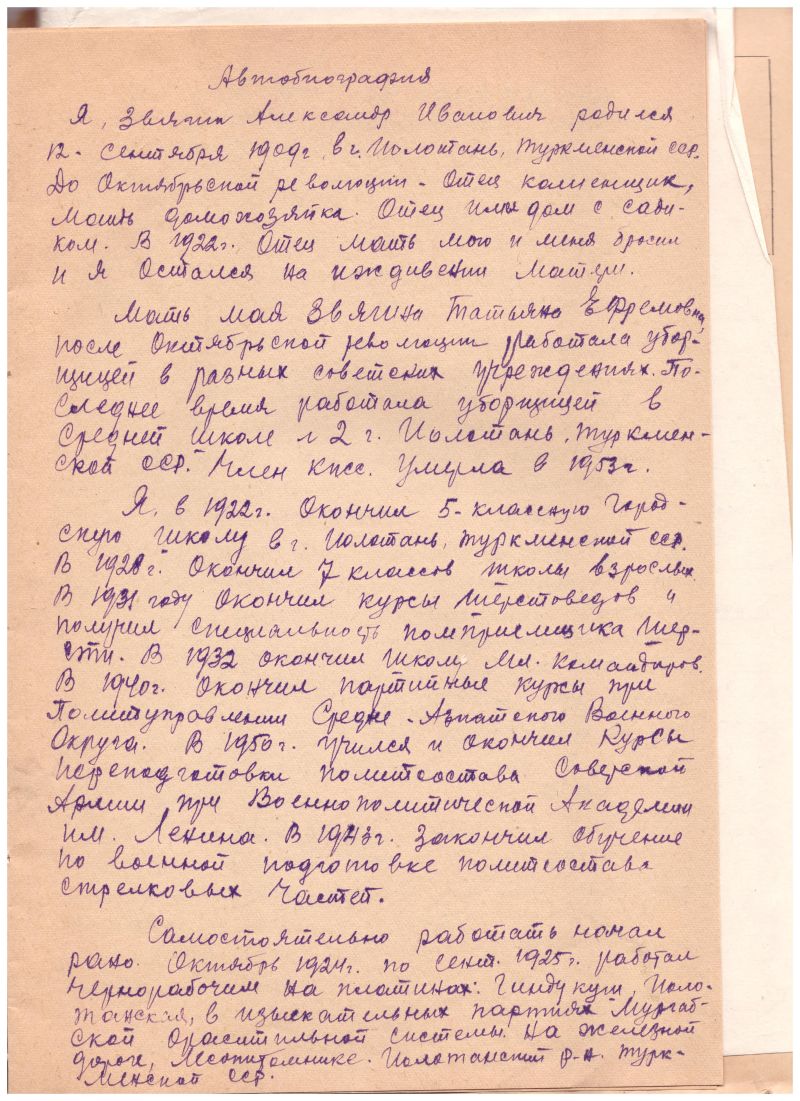 Автобиография
Я, Звягин Александр Иванович родился
12 - сентября 1909г. в г. Иолотань, Туркменской ССР.
До Октябрьской революции - Отец каменщик,
Мать домохозяйка. Отец имел дом с сади-
ком. В 1922г. Отец мать мою и меня бросил
и я Остался на иждивении Матери.
Мать мая Звягина Татьяна Ефремовна,
после Октябрьской революции работала убор-
щицей в разных советских учреждениях. По-
следнее время работала уборщицей в
Средней школе № 2 г. Иолотань, Туркмен-
ской ССР. Член КПСС. Умерла в 1953г.
Я, в 1922г. Окончил 5-классную Город-
скую школу в г. Иолотань, Туркменской ССР.
В 1928г. Окончил 7 классов школы взрослых.
В 1931 году Окончил курсы Шерстоведов и
получил специальность помприемщика Шер-
сти. В 1932 окончил школу Мл. Командиров.
В 1940г. Окончил партийные курсы при
Политуправлении Средне-Азиатского Военного
Округа. В 1950г. учился и окончил Курсы
переподготовки политсостава Советской
Армии при Военнополитической Академии
им. Ленина. В 1943г. Закончил обучение
по военной подготовке политсостава
стрелковых частей.
Самостоятельно работать начал
рано. Октябрь 1924г. по сент. 1925г. работал
чернорабочим на платинах: Гиндукуш, Иоло-
танская, в изыскательных партиях Мургаб-
ской Оросительной системы. На железной
дороге, Лесопитомнике. Иолотанский р-н. Турк-
менской ССР.